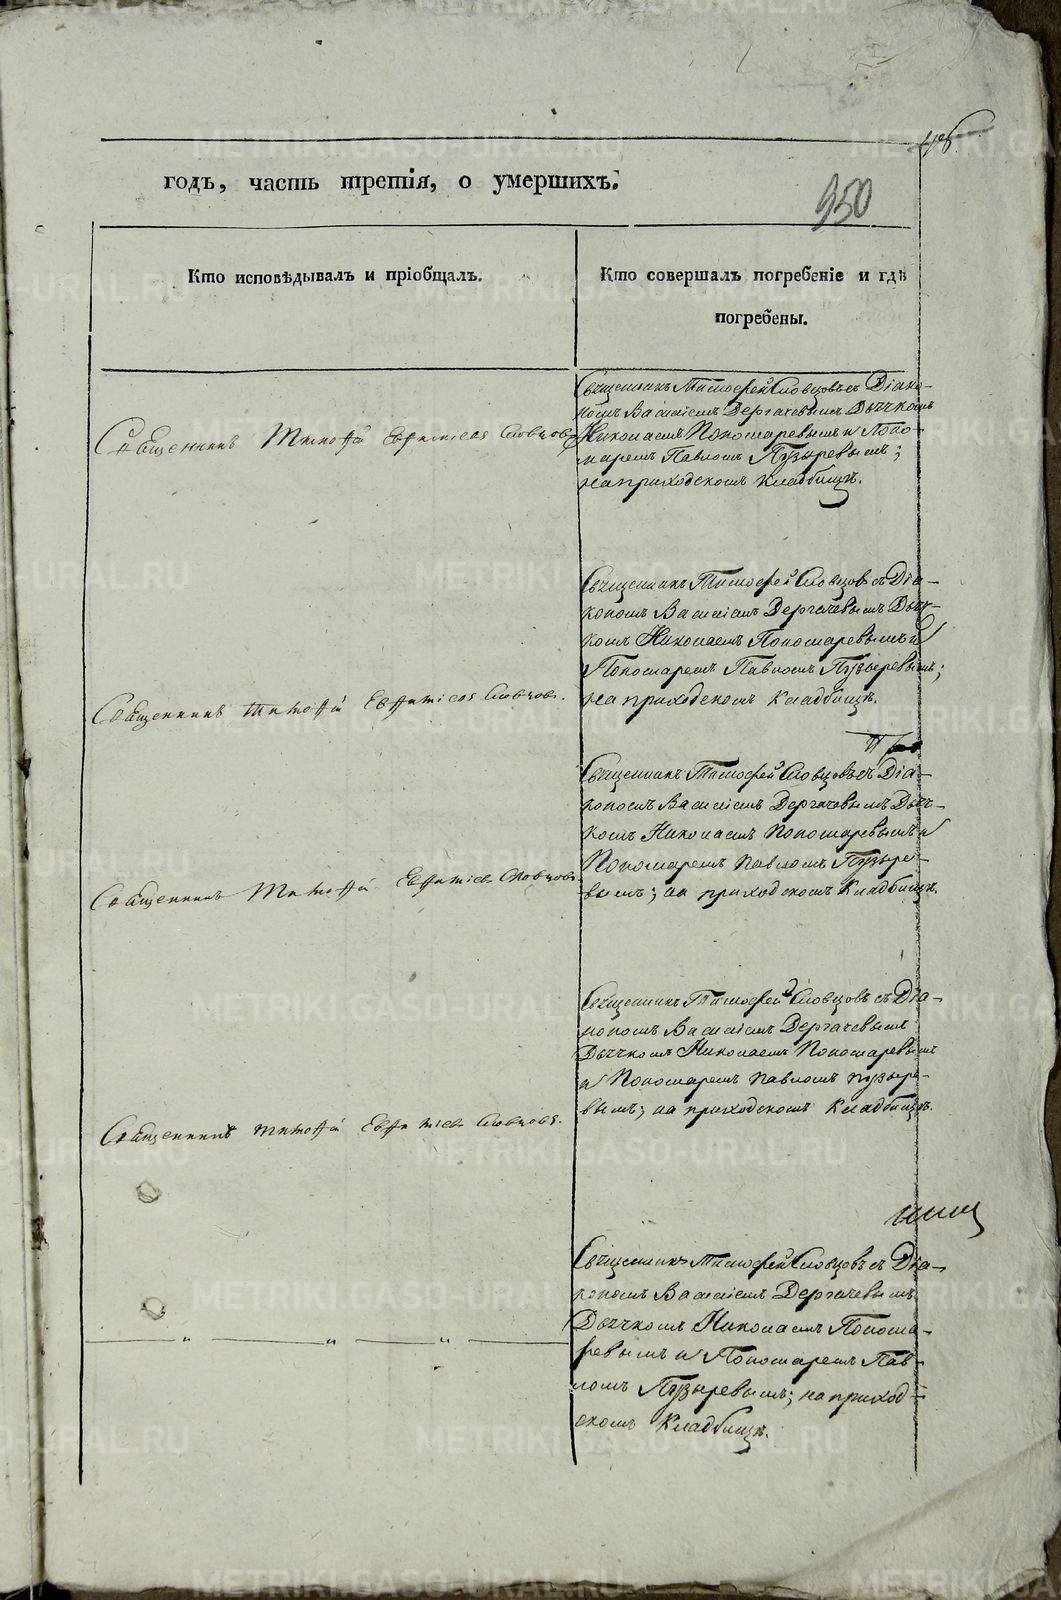 годъ, часть третія, о умершихъ.
950
Кто исповѣдывалъ и пріобщалъ.
Кто совершалъ погребеніе и гдѣ
погребены.
Священникъ Тимофей Словцовъ съ Діако-
номъ Василіемъ Дергачевымъ Дьячкомъ
Николаемъ Пономаревымъ и Поно-
маремъ Павломъ Пузыревымъ;
на приходскомъ кладбищѣ.
Священникъ Тимофей Евфимiевъ Словцовъ
Священникъ Тимофей Словцовъ съ Діа-
кономъ Василіемъ Дергачевымъ Дьяч-
комъ Николаемъ Пономаревымъ и
Пономаремъ Павломъ Пузыревымъ;
на приходскомъ кладбищѣ.
Священникъ Тимофей Евфимiевъ Словцовъ.
Священникъ Тимофей Словцовъ съ Діа-
кономъ Василіемъ Дергачевымъ Дьяч-
комъ Николаемъ Пономаревымъ и
Пономаремъ Павломъ Пузыре-
вымъ; на приходскомъ кладбищѣ.
Священникъ Тимофей Евфимiевъ Словцовъ
Священникъ Тимофей Словцовъ съ Діа-
кономъ Василіемъ Дергачевымъ
Дьячкомъ Николаемъ Пономаревымъ
и Пономаремъ Павломъ Пузыре-
вымъ; на приходскомъ кладбищѣ.
Священникъ Тимофей Евфимiевъ Словцовъ.
Священникъ Тимофей Словцовъ съ Діа-
кономъ Василіемъ Дергачевымъ
Дьячкомъ Николаемъ Понома-
ревымъ и Пономаремъ Пав-
ломъ Пузыревымъ; на приход-
скомъ кладбищѣ.
METRIKI.GASO-URAL.RU